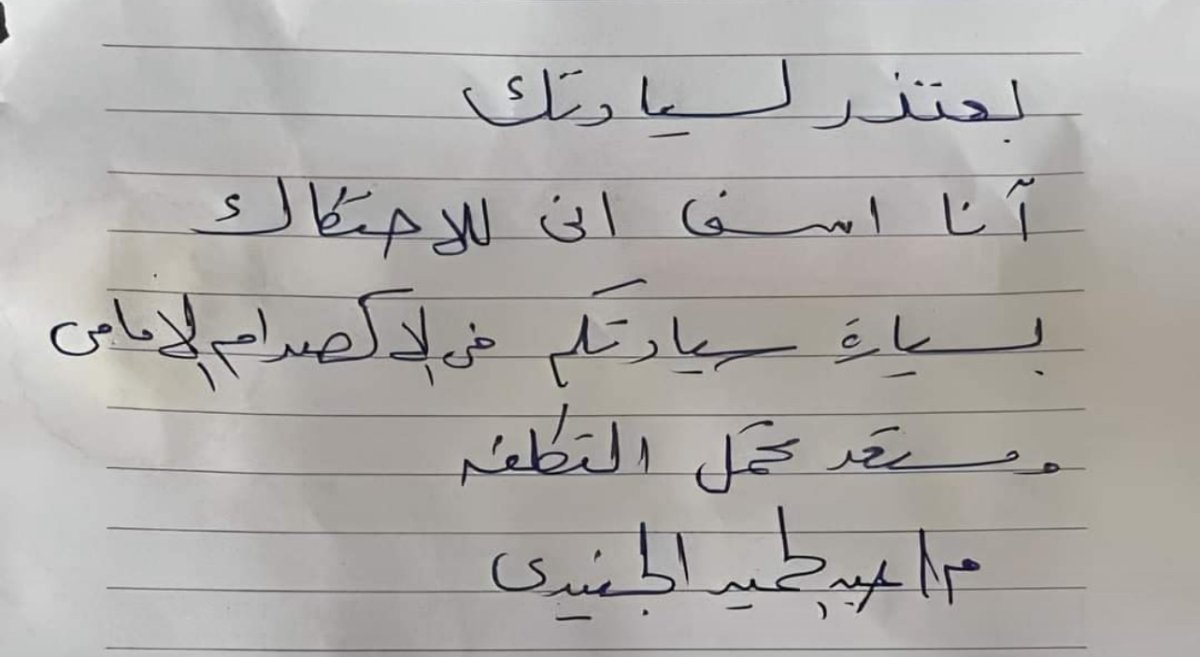 بعتذر لسيادتك
آنا اسف انى للاحتكاك
بسيارة سيادتكم فى الاكصدام الامامى
ومستعد تحمل التكلفه
م/ عبدالحميد الجنيدى